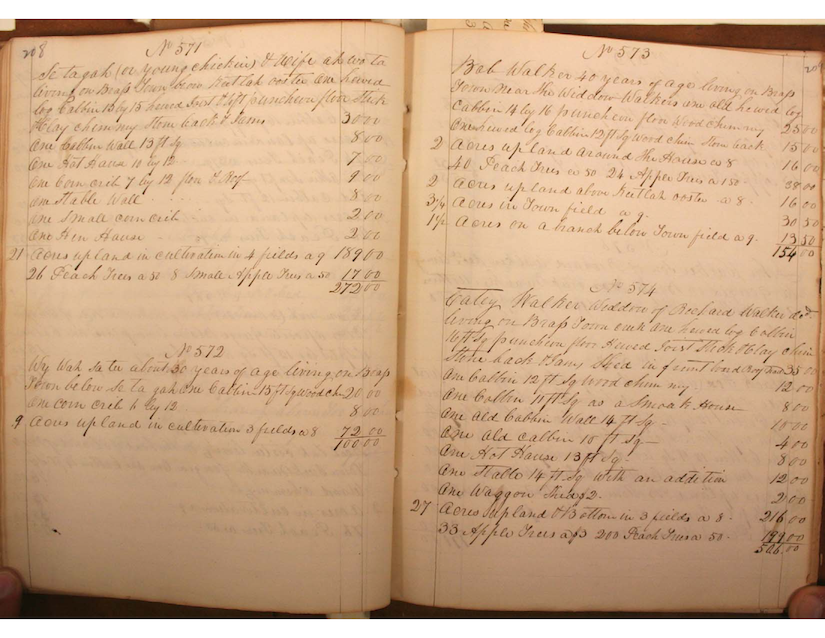 208
No 571
Se ta gah (or young chicken) & Wife ah wo ta
living on Brass Town below Keetlah ooster One hewed
log Cabbin 15 by 15 hewed Joist & loft puncheon floor Stick
& Clay chimmny Stone back & Jams 30 00
One Cabbin Wall 13 ft Sq 8 00
One Hot House 10 by 12 7 00
One Corn crib 7 by 12 floor & Roof 9 00
One Stable Wall 8 00
One Small corn crib 2 00
One Hen House 2 00
21 Acres up land in cultivation in 4 fields a 9 189 00
26 Peach Trees a 50 8 Small Apple Trees a 50 17 00
272 00
No 572
Wy Wah Sa tee about 30 years of age living on Brass
Town below Se ta gah one Cabbin 15 ft Sq Wood Ch 20 00
One corn crib 6 by 13 8 00
9 Acres up land in cultivation 3 fields a 8 72 00
100 00
209
No 573
Bob Walker 40 years of age living on Brass
Town Near the Widdow Walkers one old hewed log
Cabbin 14 by 16 puncheon floor Wood chimmny 25 00
One hewed log Cabbin 12 ft Sq Wood chim Stone back 15 00
2 Acres up land around the House a 8 16 00
40 Peach Trees a 50 24 Apple Trees a 150 38 00
2 Acres up land above Keetlah ooster a 8 16 00
3 1/2 Acres in Town field a 9 30 50
1 1/2 Acres on a branch below Town field a 9 13 50
154 00
No 574
Catey Walker Widdow of Richard Walker decd
living on Brass Town creek one hewed log Cabbin
16 ft Sq puncheon floor Hewed Joist Stick & Clay chim
Stone back & Jams Shed in front board Roof 35 00
One Cabbin 12 ft Sq Wood chimmny 12 00
One Cabbin 11 ft Sq as a Smoak House 8 00
One old Cabbin Wall 14 ft Sq 10 00
One old cabbin 10 ft Sq 4 00
One Hot House 13 ft Sq 8 00
One Stable 14 ft Sq With an addition 12 00
One Waggon Shed $2 2 00
27 Acres upland & Bottom in 3 fields a 8 216 00
33 Apple Trees a $3 200 Peach Trees a 50 199 00
506 00